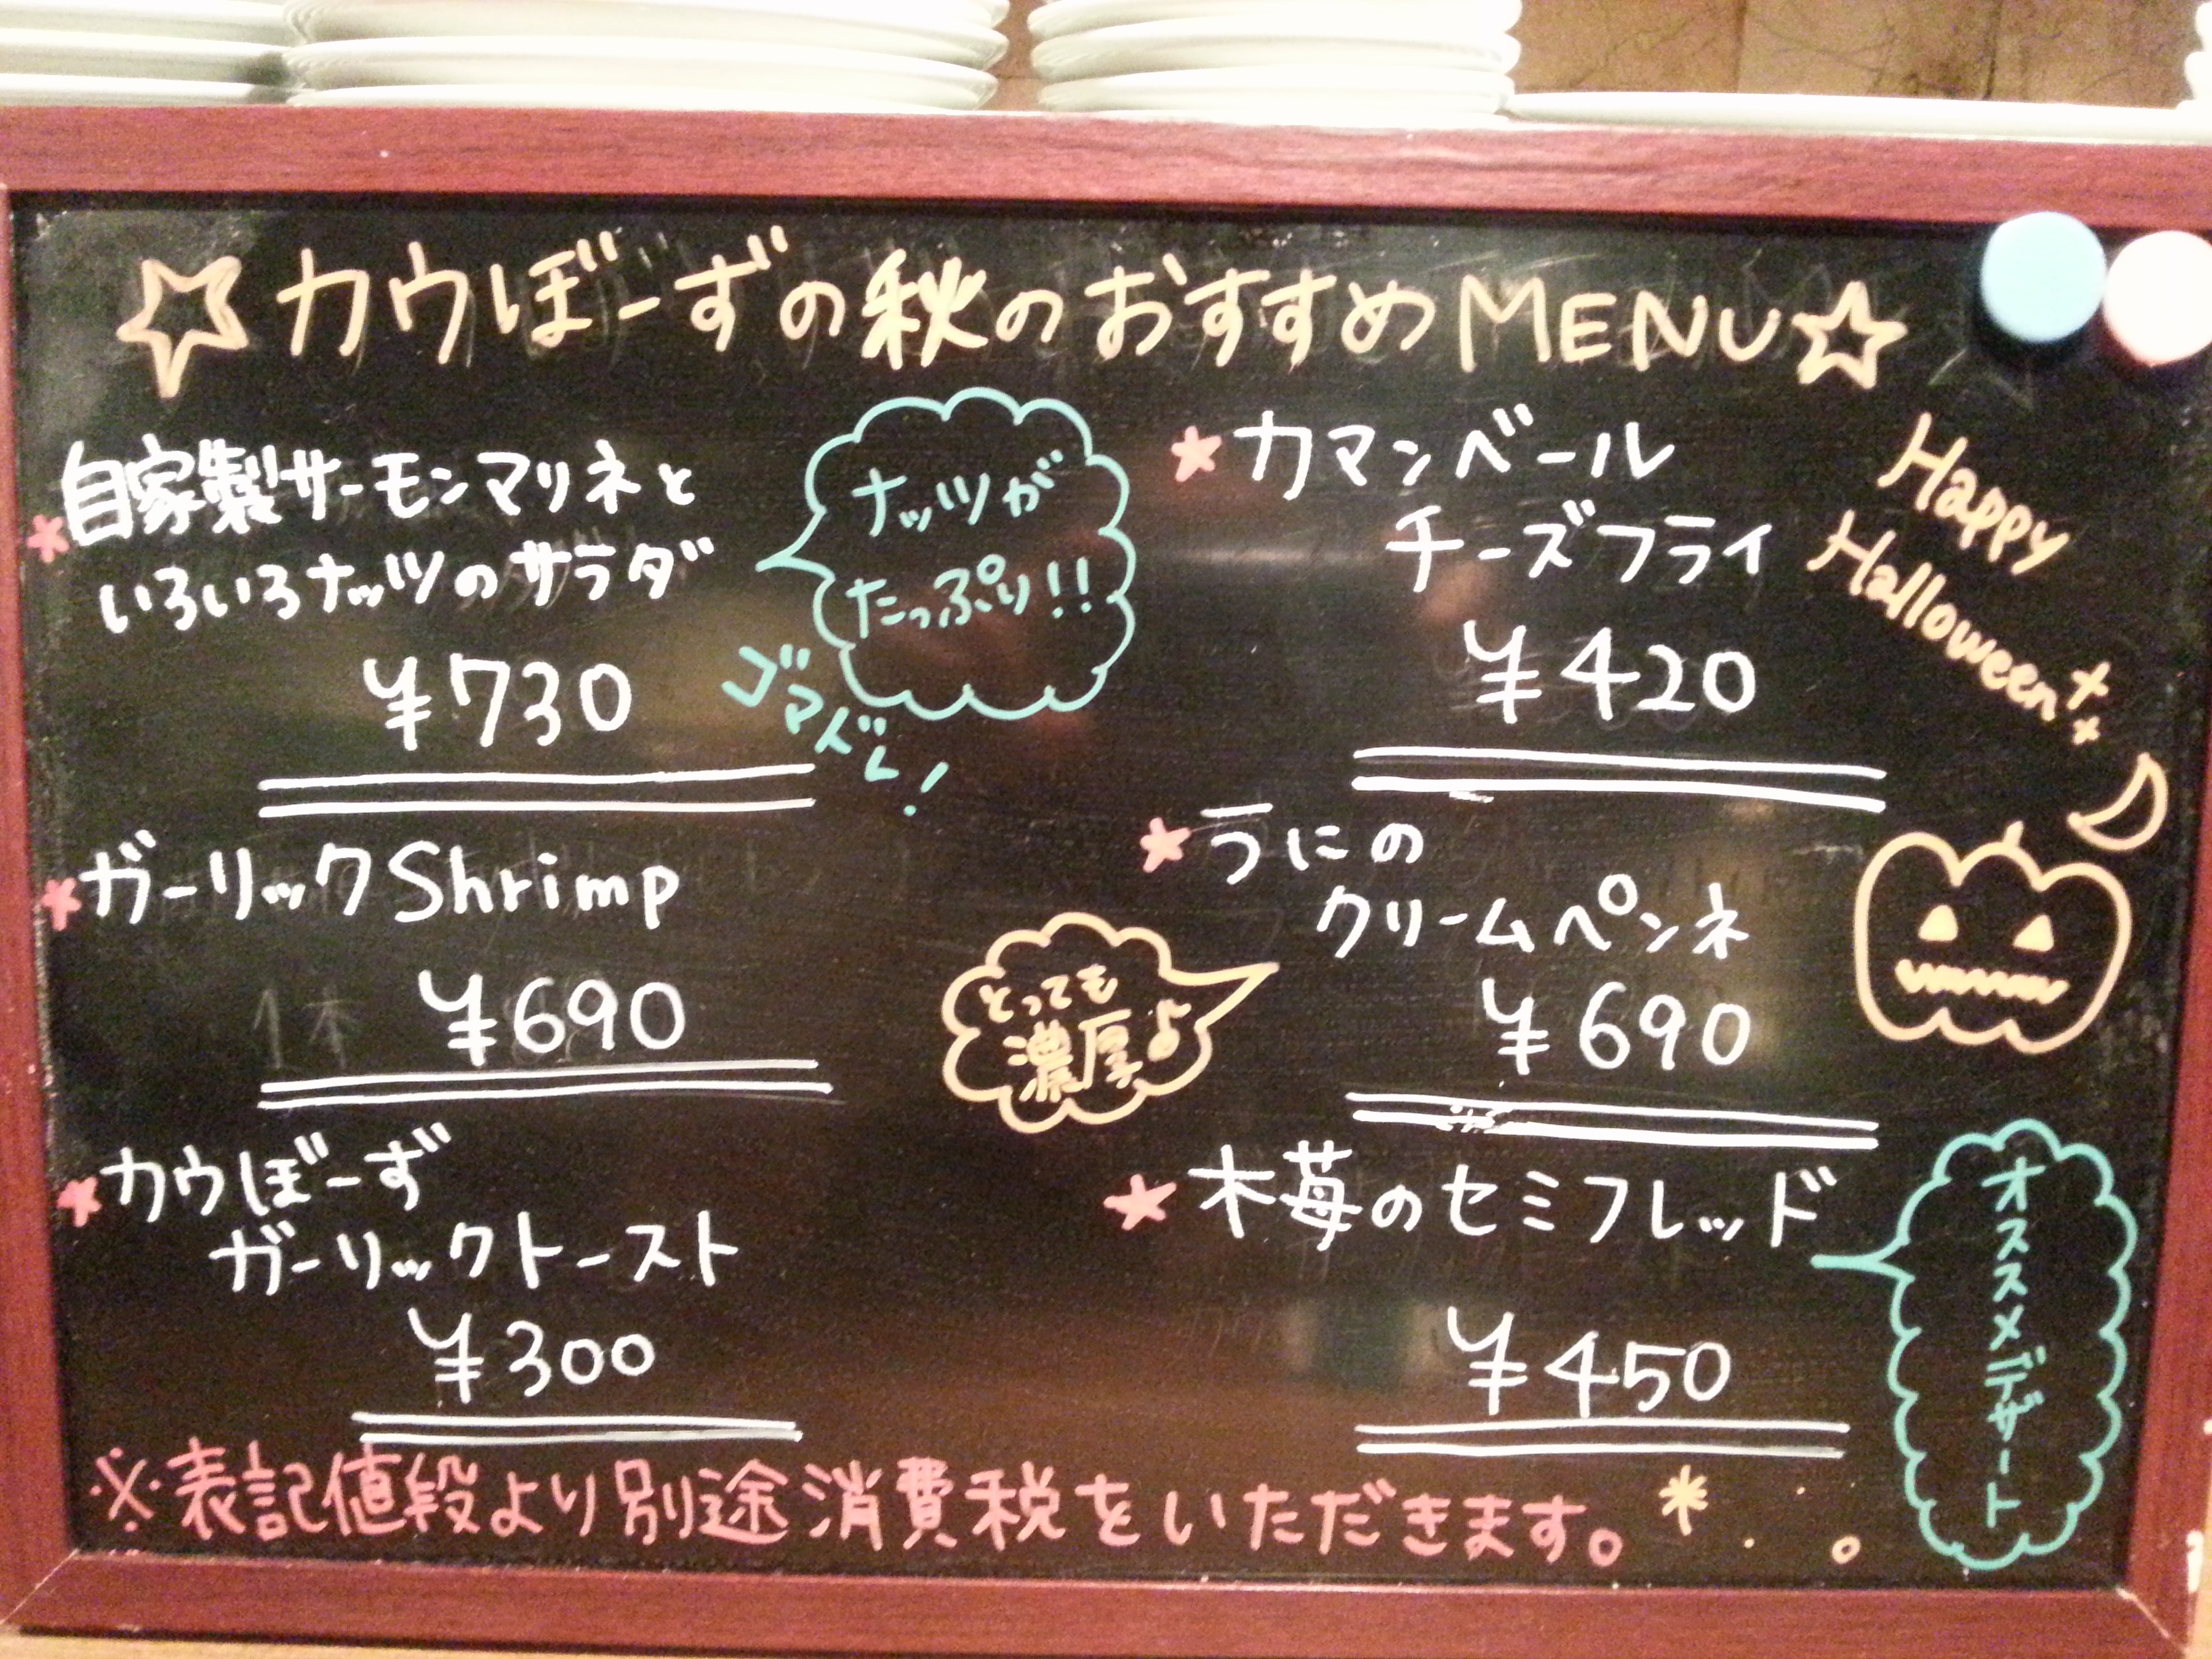 ☆カウぼーずの秋のおすすめMENU☆
★自家製サーモンマリネと
いろいろナッツのサラダ
¥730
ナッツが
たっぷり!!
ゴマドレ!
★ガーリックShrimp
¥690
★カウぼーず
ガーリックトースト
¥300
★カマンベール
チーズフライ
¥420
Happy
Halloween
★うにの
クリームペンネ
¥690
とっても
濃厚♪
★木苺のセミフレッド
¥450
オススメデザート
※表記値段より別途消費税をいただきます。